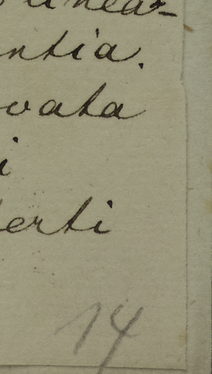 linea-
ntia.
ovata
i
erti
14